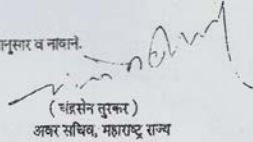 नुसार व नावाने.
( चंद्रसेन तुरकर )
अवर सचिव, महाराष्ट्र राज्य